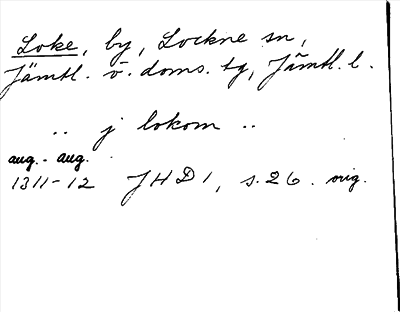 Loke, by, Lockne sn,
Jämtl. ö. doms. tg, Jämtl. l.
.. j lokom ..
aug. - aug.
1311-12 JHD 1, s. 26. orig.